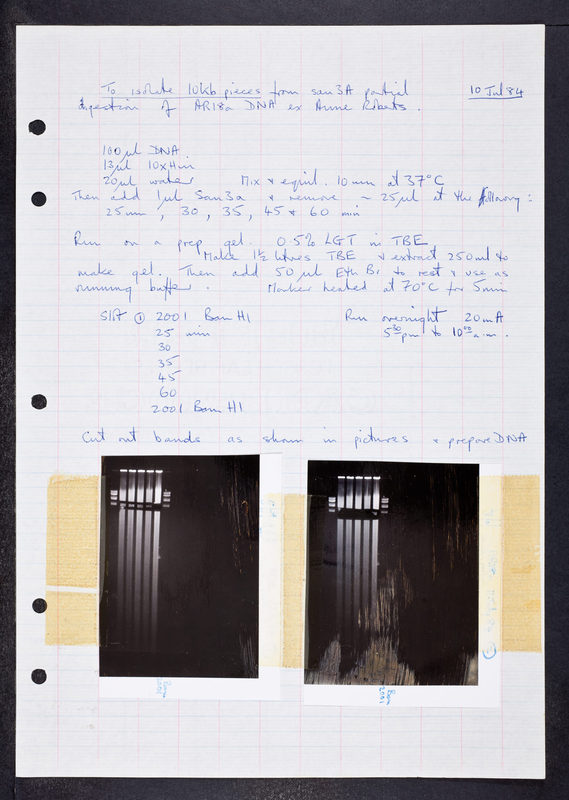 To isolate 10kb pieces from sau3A partial 10 Jul 84
digestion of AR18a DNA ex Anne Roberts.
100µl DNA
13µl 10xHin
20µl water Mix & equil. 10 min at 37°C
Then add 1µl Sau3a & remove ~ 25µl at the following :
25min, 30, 35, 45 & 60 min
Run on a prep gel. 0.5% LGT in TBE
Make 1½ litres TBE & extract 250ml to
make gel. Then add 50µl Eth Br to rest & use as
running buffer. Marker heated at 70°C for 5min
Slot ① 2001 Bam H1 Run overnight 20mA
25 min 5 30 pm to 10 00 a.m.
30
35
45
60
2001 Bam H1
Cut out bands as shown in pictures & prepare DNA
Bam
2001
Bam
2001